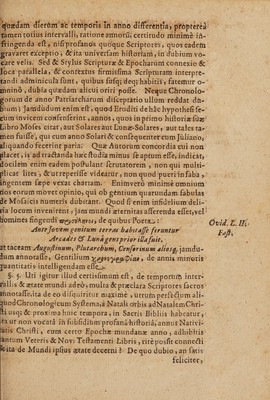 quædam dierum ac temporis in anno differentia, proptereà
tamen totius intervalli, ratione annorũ, certitudo minimè in-
fringenda est, nisi profanos quoque Scriptores, quos eadem
gravaret exceptio, & ità universam historiam, in dubium vo-
care velis. Sed & Stylus Scripturæ & Epocharum connexio &
loca parallela, & contextus firmissima Scripturam interpre-
tandi adminicula sunt, quibus susq; deq; habitis, fatemur o-
mninò, dubia quædam alicui oriri posse. Neque Chronolo-
gorum de anno Patriarcharum disceptatio ullum reddat du-
bium; Jamdudum enim est, quod Eruditi de hâc hypothesi se-
cum invicem consenserint, annos, quos in primo historiæ suæ
Libro Moses citat, aut Solares aut Lunæ-Solares, aut tales ta-
men fuisse, qui cum anno Solari & consequenter cum Juliano,
aliquando fecerint paria. Quæ Autorum concordia cui non
placet, is ad tractanda hæc studia minus se aptum esse, indicat,
docilem enim eadem postulant scrutatorem, non qui multi-
plicat lites, & ut reperisse videatur, non quod pueri in faba,
ingentem sæpè vexat chartam. Enimverò minimè omnium
nos eorum movet opinio, qui ob gentium quarundam fabulas
de Mosaicis numeris dubitant. Quod si enim insidelium deli-
ria locum invenirent, jam mundi æternitas asserenda esset, vel
homines singendi de quibus Poëta:
Ante Jovem genitum terras habuisse feruntur
Arcades & Lunâ gens prior illa fuit.
Ovid. L. II.
Fast.
ut taceam Augustinum, Plutarchum, Censorinum aliosq, jamdu-
dum annotasse, Gentilium de annis minoris
quantitatis intelligendam esse.
§. 5. Uti igitur illud certissimum est, de temporum inter-
vallis & ætate mundi adeò, multa & præclara Scriptores sacros
annotasse, ita de eo disquiritur maximè, utrum perfectum ali-
quod Chronologicum Systema, à Natali orbis ad Natalem Chri-
sti usq; & proxima huic tempora, in Sacris Bibliis habeatur,
ita ut non vocatâ in subsidium profanâ historiâ, annus Nativi-
tatis Christi, cum certo Epochæ mundanæ anno, adhibitis
tantum Veteris & Novi Testamenti Libris, ritè possit connecti
& ita de Mundi ipsius ætate decerni? De quo dubio, an satis
feliciter,